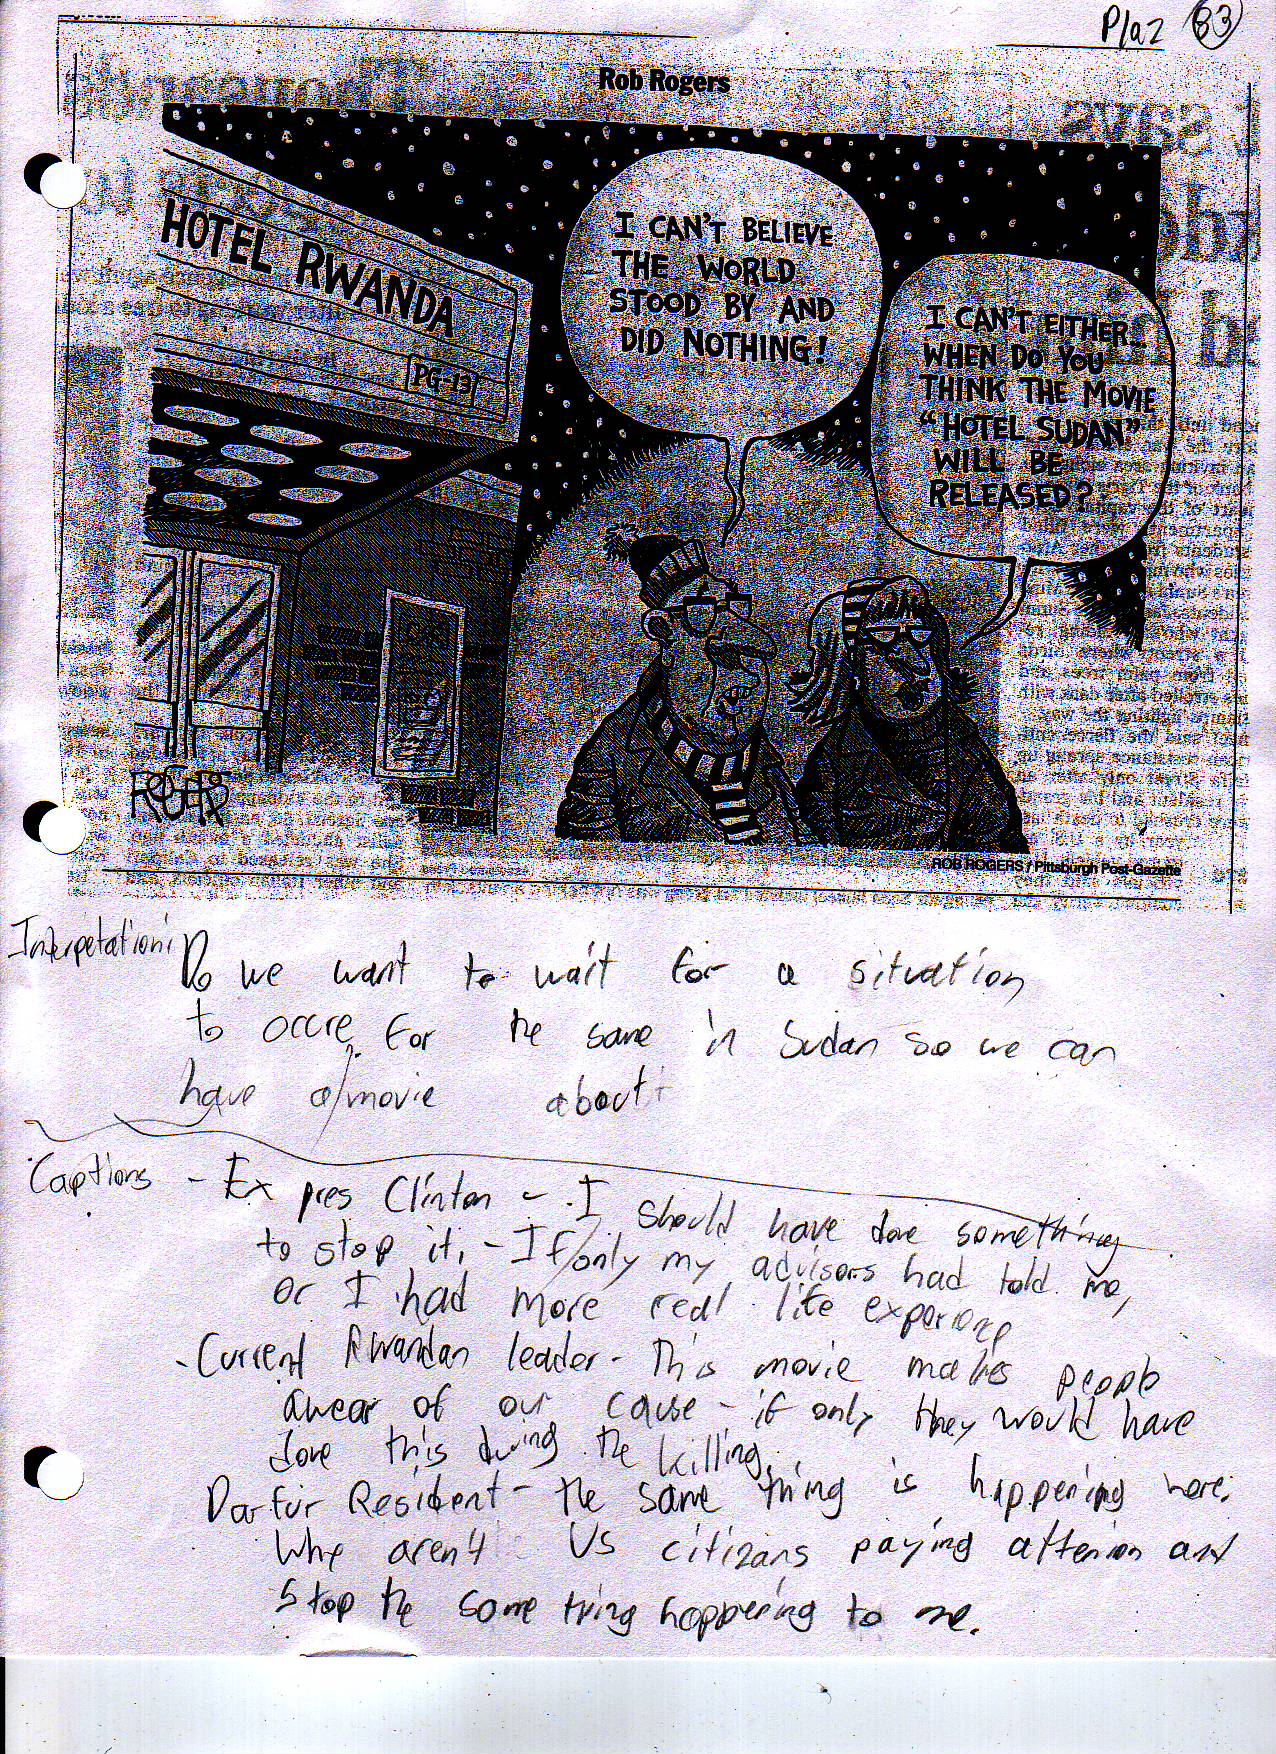 Plaz 83
Rob Rogers
HOTEL RWANDA
PG-13
I CAN'T BELIEVE
THE WORLD
STOOD BY AND
DID NOTHING!
I CAN'T EITHER...
WHEN DO YOU
THINK THE MOVIE
"HOTEL SUDAN"
WILL BE
RELEASED?
ROGERS
ROB ROGERS / Pittsburgh Post-Gazette
Interpetation: Do we want to wait for a situation
to occre for the same in Sudan so we can
have a movie about
Captions - Ex pres Clinton - I should have done something
to stop it. - If only my advisors had told me,
or I had more real life experience
- Current Rwandan leader - This movie makes people
awear of our cause - if only they would have
done this during the killing.
Darfur Resident - the same thing is happening here.
Why aren't US citizans paying attenion and
stop the same thing happening to me.